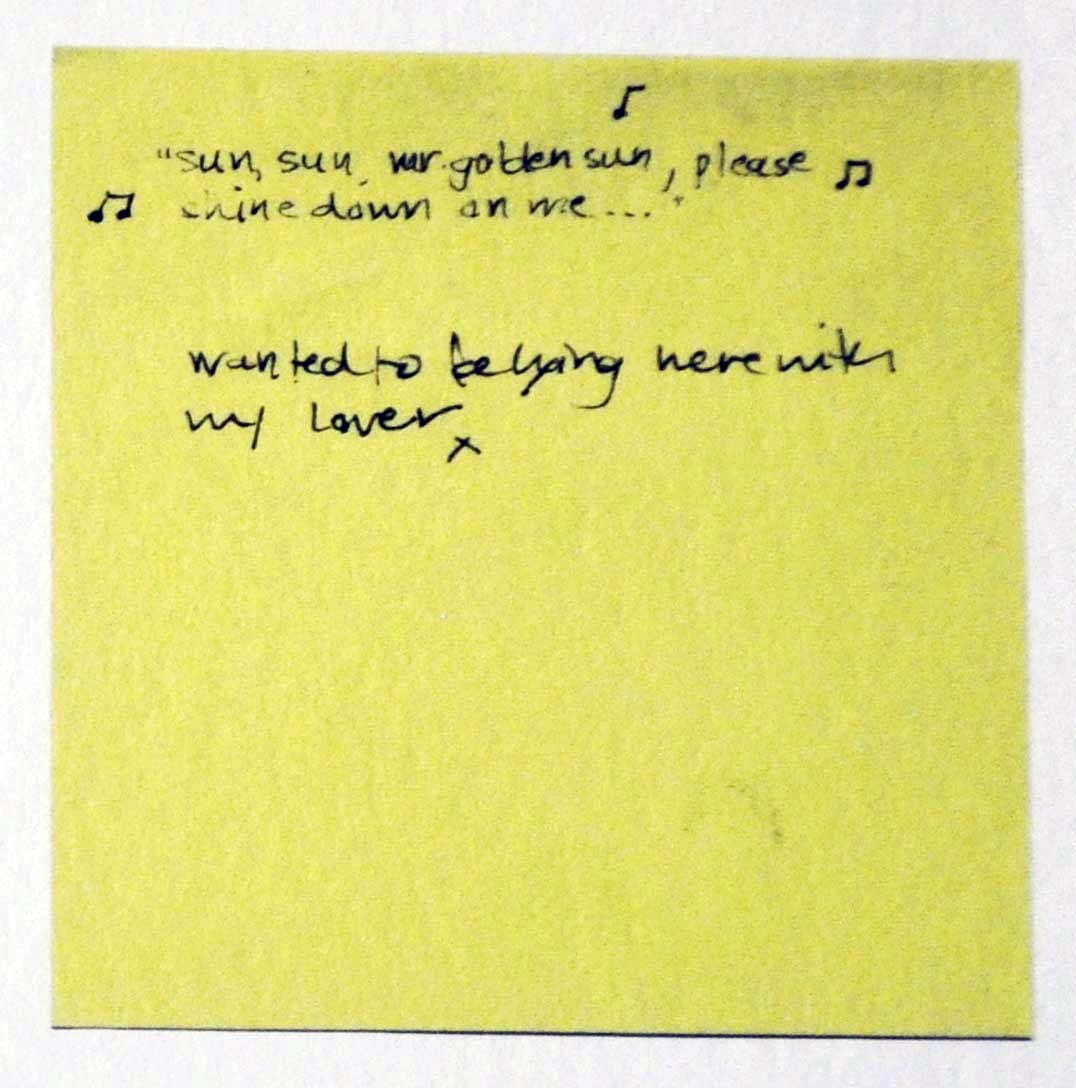 "sun, sun, mr. golden sun, please
shine down on me..."
wanted to be lying here with
my lover x